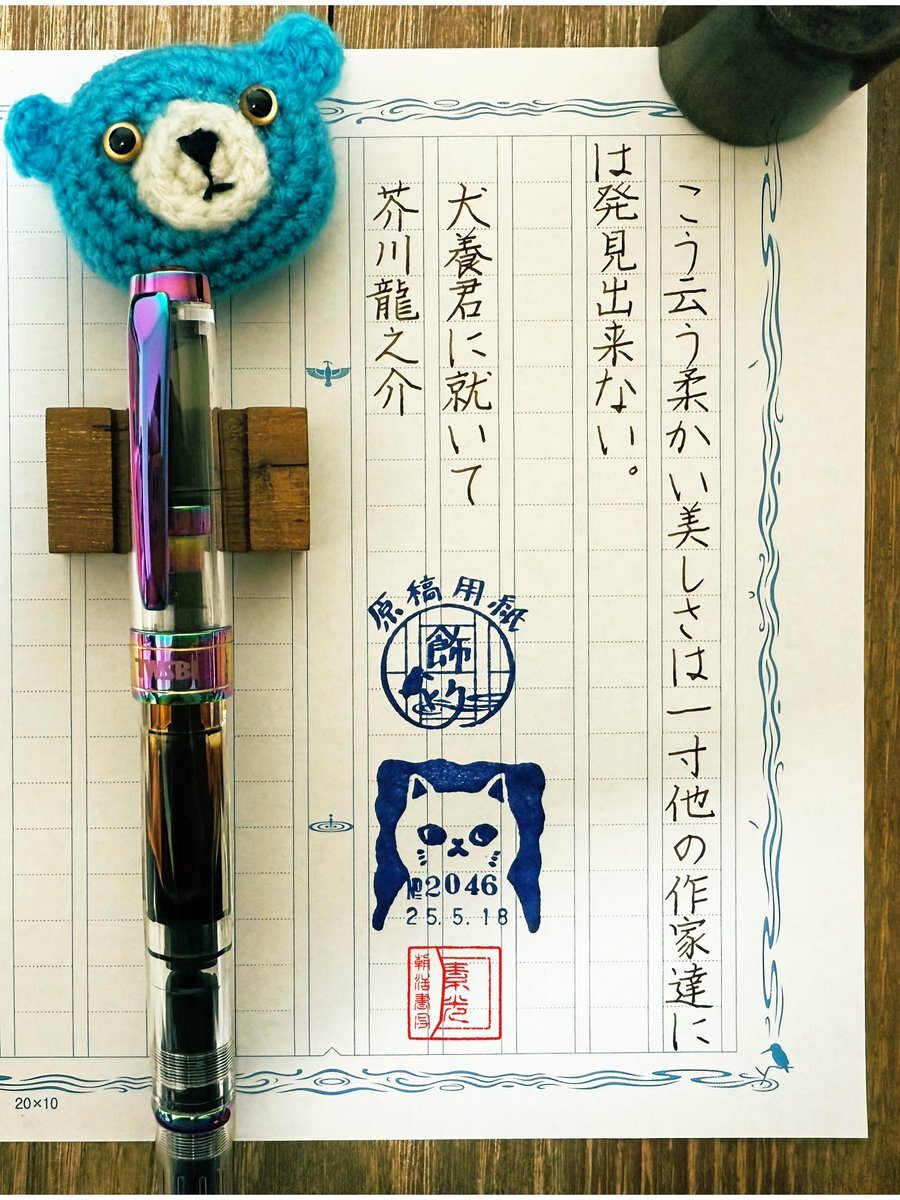 こう云う柔かい美しさは一寸他の作家達に
は発見出来ない。
犬養君に就いて
芥川龍之介
原稿用紙
飾り
№2046
25.5.18
素光
朝活書写
TWSBI
20×10